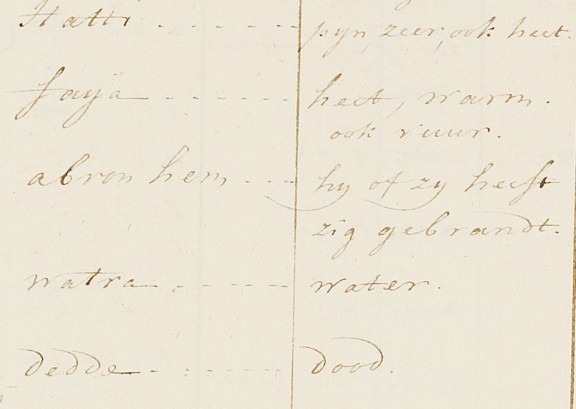 Hatti - - - - - pyn, zeer, ook heet.
faya - - - - - heet, warm.
ook vuur.
abron hem - - - hy of zy heeft
zig gebrandt.
watra - - - - - water.
dedde - - - - - dood.